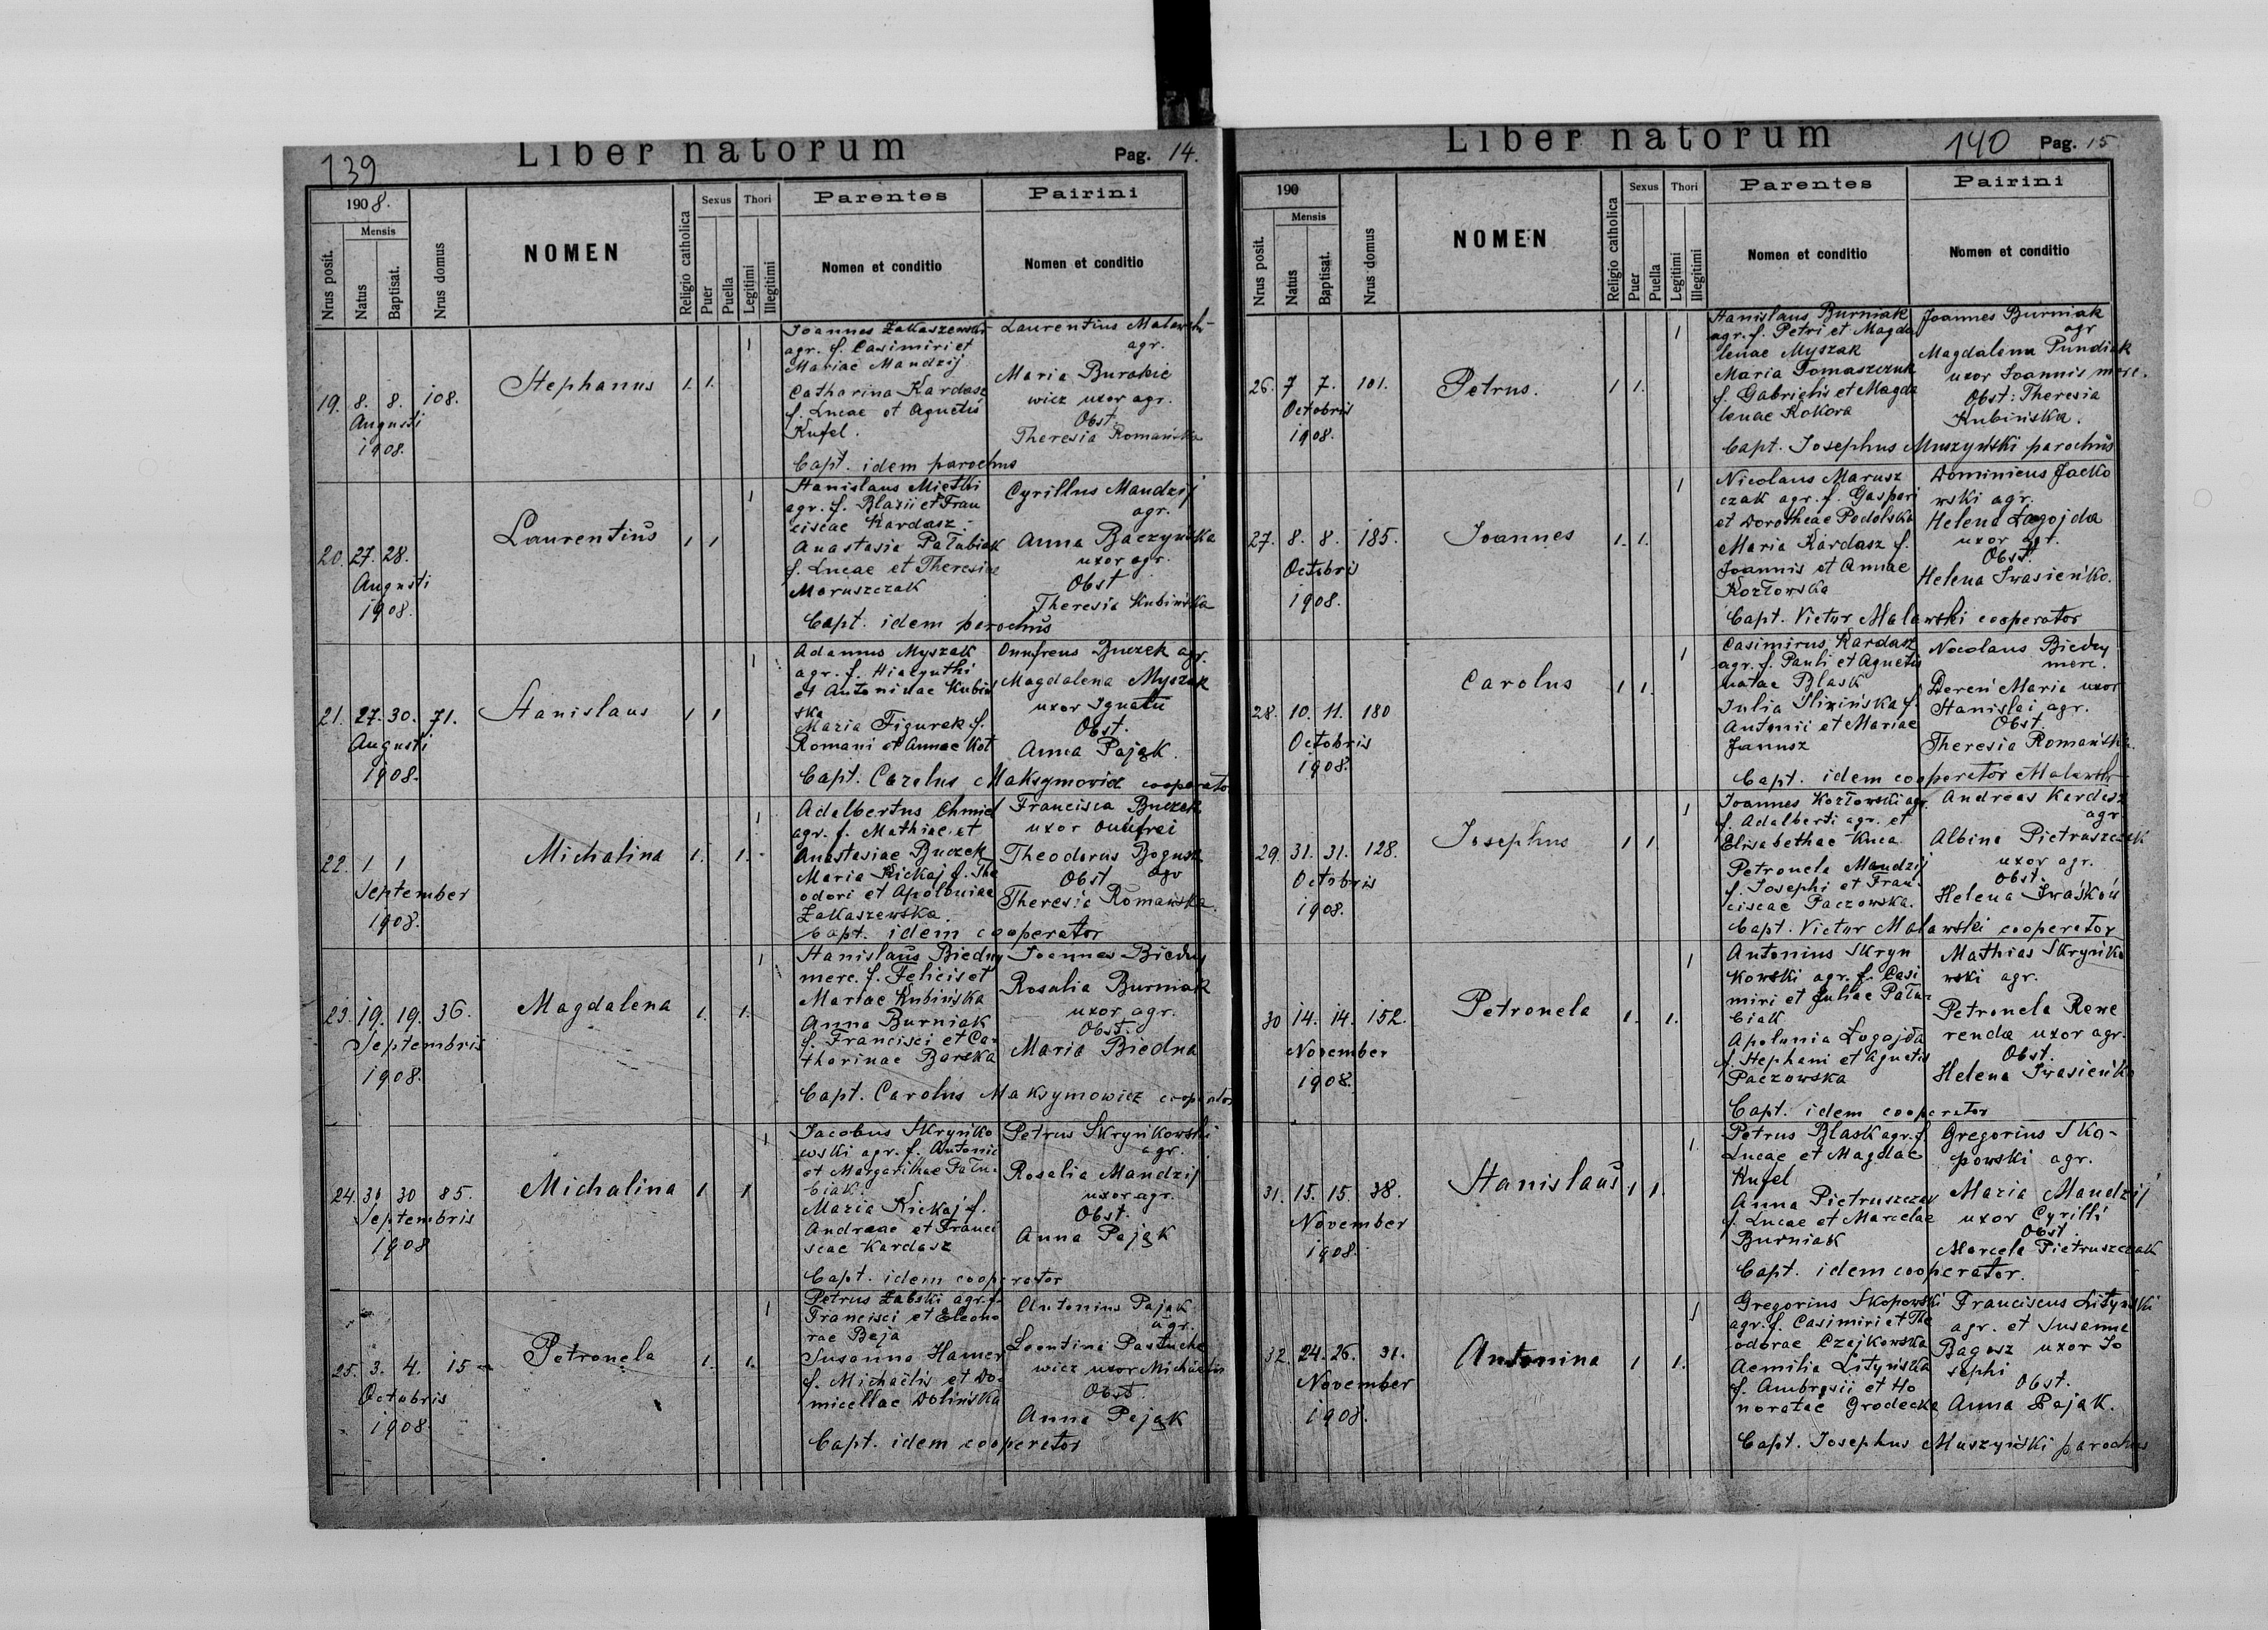 139
Liber natorum
Pag. 14.
1908.
Mensis
Nrus posit.
Natus
Baptisat.
Nrus domus
NOMEN
Religio catholica
Sexus
Puer
Puella
Thori
Legitimi
Illegitimi
Parentes
Nomen et conditio
Pairini
Nomen et conditio
19. 8. 8. 108.
Augusti
1908.
Stephanus 1. 1. 1
Joannes Zakaszewski
agr. f. Casimiri et
Mariae Mandzij
Catharina Kardasz
f. Lucae et Agnetis
Kufel.
Laurentius Malawski
agr.
Maria Burakie
wicz uxor agr.
Obst.
Theresia Romańska
Capt. idem parochus
20. 27. 28.
Augusti
1908.
Laurentius 1 1 1
Stanislaus Mietki
agr. f. Blasii et Fran
ciscae Kardasz.
Anastasia Pałubiak
f. Lucae et Theresiae
Maruszczak
Cyrillus Mandzij
agr.
Anna Baczyńska
uxor agr.
Obst
Theresia Kubińska
Capt. idem parochus
21. 27. 30. 71.
Augusti
1908.
Stanislaus 1 1 1
Adamus Myszak
agr. f. Hiacynthi
et Antoninae Kubiń
ska
Maria Figurek f.
Romani et Annae Kot
Onufreus Buczek agr.
Magdalena Myszak
uxor Ignatii
Obst.
Anna Pająk
Capt. Carolus Maksymovicz cooperator
22. 1 1
September
1908.
Michalina 1. 1. 1
Adalbertus Chmiel
agr. f. Mathiae et
Anastasiae Buczek
Maria Kickaj f. The
odori et Apoloniae
Zakaszewska.
Francisca Buczek
uxor Onufrei
Theodorus Bogusz
Obst agr
Theresia Romańska.
Capt. idem cooperator
23. 19. 19. 36.
Septembris
1908.
Magdalena 1. 1. 1
Stanislaus Biedny
merc. f. Felicis et
Mariae Kubińska
Anna Burniak
f. Francisci et Ca
tharinae Barska
Joannes Biedny
Rosalia Burniak
uxor agr.
Obst.
Maria Biedna
Capt. Carolus Maksymowicz cooperator
24. 30 30 85.
Septembris
1908
Michalina 1 1 1
Jacobus Skryńko
wski agr. f. Antonii
et Margarithae Pału-
biak.
Maria Kickaj f.
Andreae et Franci
scae Kardasz
Petrus Skryńkowski
agr.
Rosalia Mandzij
uxor agr.
Obst.
Anna Pająk
Capt. idem cooperator
25. 3. 4. 15
Octobris
1908.
Petronela 1. 1. 1
Petrus Żabski agr. f.
Francisci et Eleono
rae Beja
Susanna Hamer
f. Michaëlis et Do-
micellae Dolińska
Antonius Pająk
agr.
Leontina Pastuche
wicz uxor Michaëlis
Obst.
Anna Pająk
Capt. idem cooperator
Liber natorum
140
Pag. 15
190
Mensis
Nrus posit.
Natus
Baptisat.
Nrus domus
NOMEN
Religio catholica
Sexus
Puer
Puella
Thori
Legitimi
Illegitimi
Parentes
Nomen et conditio
Pairini
Nomen et conditio
26. 7 7. 101.
Octobris
1908.
Petrus. 1 1. 1
Stanislaus Burniak
agr. f. Petri et Magda
lenae Myszak
Maria Tomaszczuk
f. Gabrielis et Magda
lenae Kokora
Joannes Burniak
agr
Magdalena Pundiak
uxor Joannis merc.
Obst: Theresia
Kubińska.
Capt. Josephus Muszyński parochus
27. 8. 8. 185.
Octobris
1908.
Joannes 1. 1. 1
Nicolaus Marusz
czak agr. f. Gaspari
et Dorotheae Podolska
Maria Kardasz f.
Joannis et Annae
Kozłowska
Dominicus Jacko
wski agr.
Helena Łagojda
uxor agr.
Obst.
Helena Iwasieńko.
Capt. Victor Malawski cooperator
28. 10. 11. 180
Octobris
1908.
Carolus 1 1. 1
Casimirus Kardasz
agr. f. Pauli et Agnetis
natae Blask
Julia Slizińska f.
Antonii et Mariae
Janusz
Nocolaus Biedny
merc.
Dereń Maria uxor
Stanislai agr.
Obst.
Theresia Romańska.
Capt. idem cooperator Malawski
29. 31. 31. 128.
Octobris
1908.
Josephus 1 1 1
Joannes Kozłowski agr.
f. Adalberti agr. et
Elisabethae Kuca
Petronela Mandzij
f. Josephi et Fran-
ciscae Paczowska.
Andreas Kardasz
agr
Albina Pietraszczak
uxor agr.
Obst.
Helena Iwaśków
Capt. Victor Malawski cooperator
30 14. 14. 152.
November
1908.
Petronela 1. 1. 1
Antonius Skryn
kowski agr. f. Casi
miri et Juliae Pału-
biak
Apolunia Łogojda
f. Stephani et Agnetis
Paczowska
Mathias Skryńko
wski agr.
Petronela Rewe
renda uxor agr.
Obst.
Helena Iwasieńko
Capt. idem cooperator
31. 15. 15. 38.
November
1908.
Stanislaus 1 1. 1
Petrus Blask agr. f.
Lucae et Magdae
Kufel
Anna Pietruszczak
f. Lucae et Marcelae
Burniak
Gregorius Sko-
powski agr.
Maria Mandzij
uxor Cyrilli
Obst.
Marcela Pietruszczak
Capt. idem cooperator.
32. 24. 26. 31.
November
1908.
Antonina 1 1. 1
Gregorius Skopowski
agr. f. Casimiri et The
odorae Czajkowska
Aemilia Lityńska
f. Ambrosii et Ho
noratae Grodecka
Franciscus Lityński
agr. et Susanna
Bagosz uxor Jo
sephi
Obst.
Anna Pająk.
Capt. Josephus Muszyński parochus